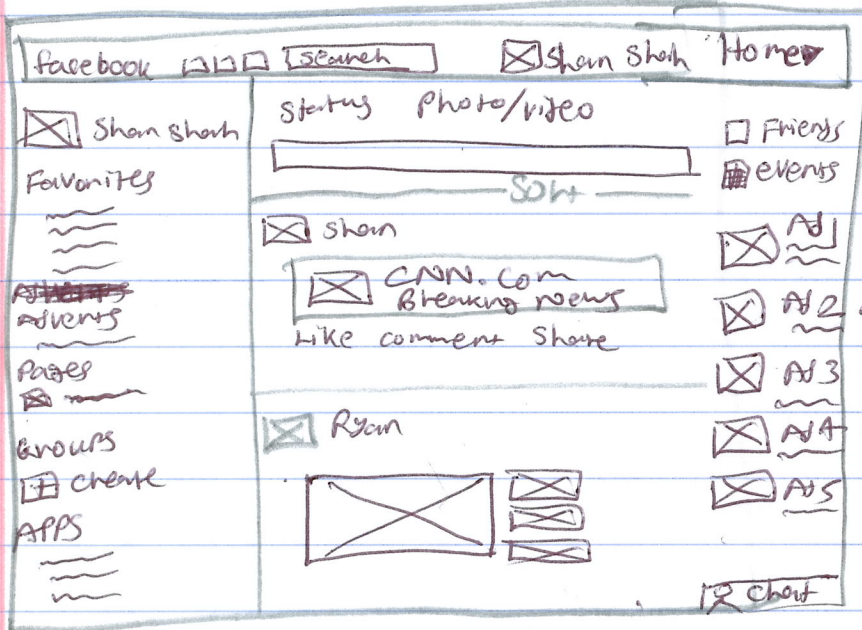 facebook search Sham Shah Home
Sham Shah
Favorites
Adverts
Pages
Groups
Create
APPS
Status Photo/video
Sort
Sham
CNN.com
Breaking News
Like comment Share
Ryan
Friends
events
Ad 1
Ad 2
Ad 3
Ad 4
Ad 5
Chat